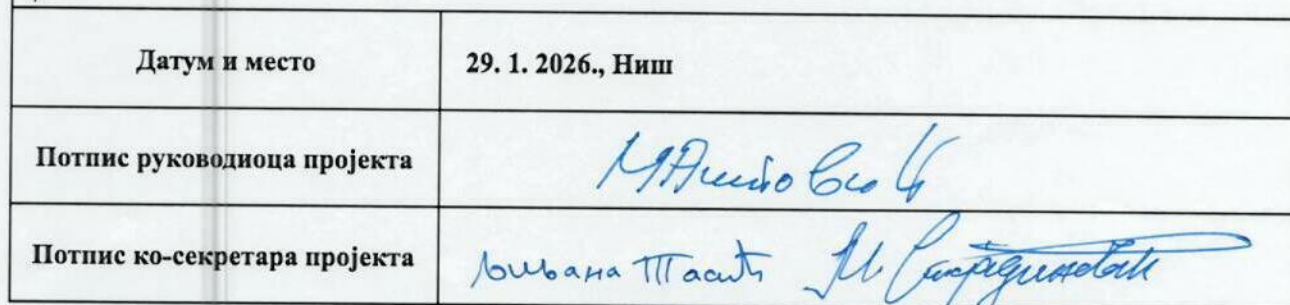 Датум и место
29. 1. 2026., Ниш
Потпис руководиоца пројекта
Потпис ко-секретара пројекта
Љиљана Тасић